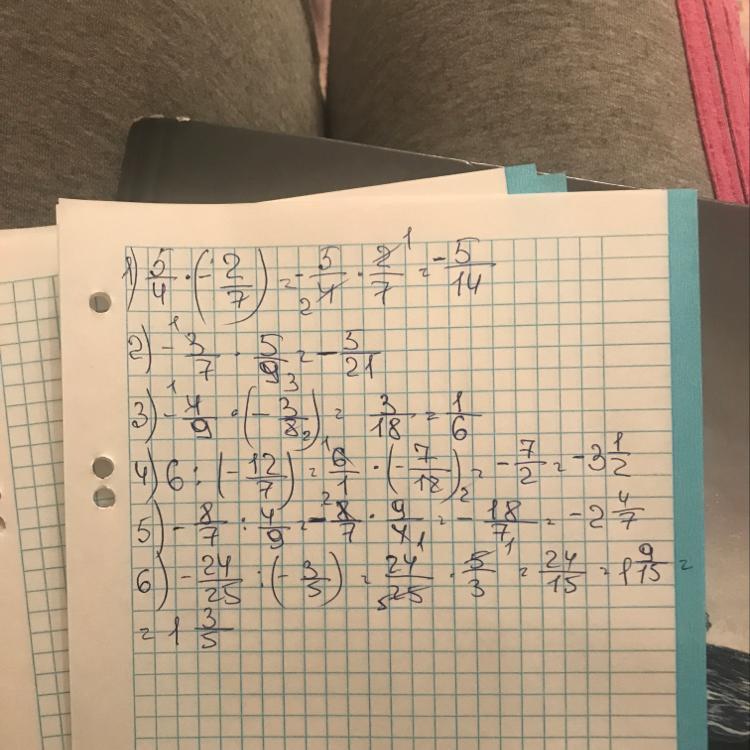 1) 5/4 · (-2/7) = -5/4 2 · 2/7 1 = -5/14
2) -3/7 1 · 5/9 3 = -5/21
3) -4/9 1 · (-3/8 2) = 3/18 = 1/6
4) 6 : (-12/7) = 6/1 1 · (-7/12) 2 = -7/2 = -3 1/2
5) -8/7 : 4/9 = -8/7 2 · 9/4 1 = -18/7 = -2 4/7
6) -24/25 : (-3/5) = 24/25 5 · 5/3 1 = 24/15 = 1 9/15 =
= 1 3/5